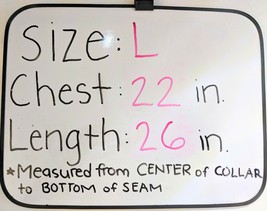 Size: L
Chest: 22 in.
Length: 26 in.
*Measured from CENTER of COLLAR
to BOTTOM of SEAM